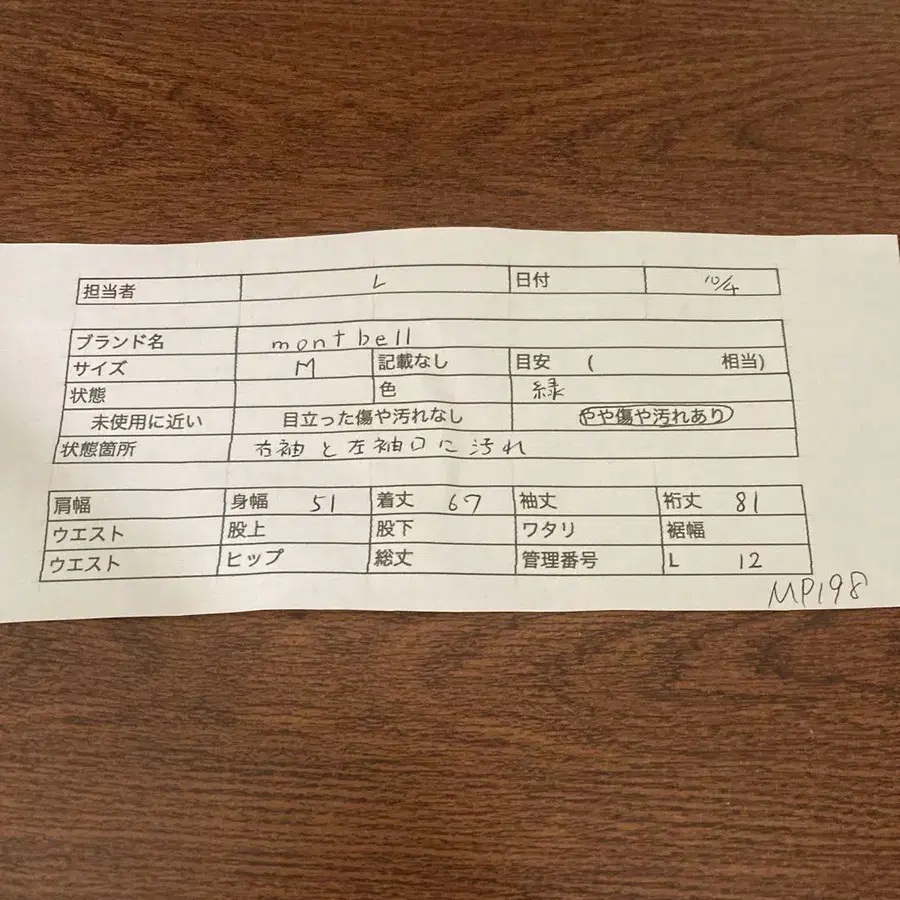 担当者 L 日付 10/4
ブランド名 montbell
サイズ M 記載なし 目安 ( 相当)
状態 色 緑
未使用に近い 目立った傷や汚れなし やや傷や汚れあり
状態箇所 右袖と左袖口に汚れ
肩幅 身幅 51 着丈 67 袖丈 裄丈 81
ウエスト 股上 股下 ワタリ 裾幅
ウエスト ヒップ 総丈 管理番号 L 12
MP198